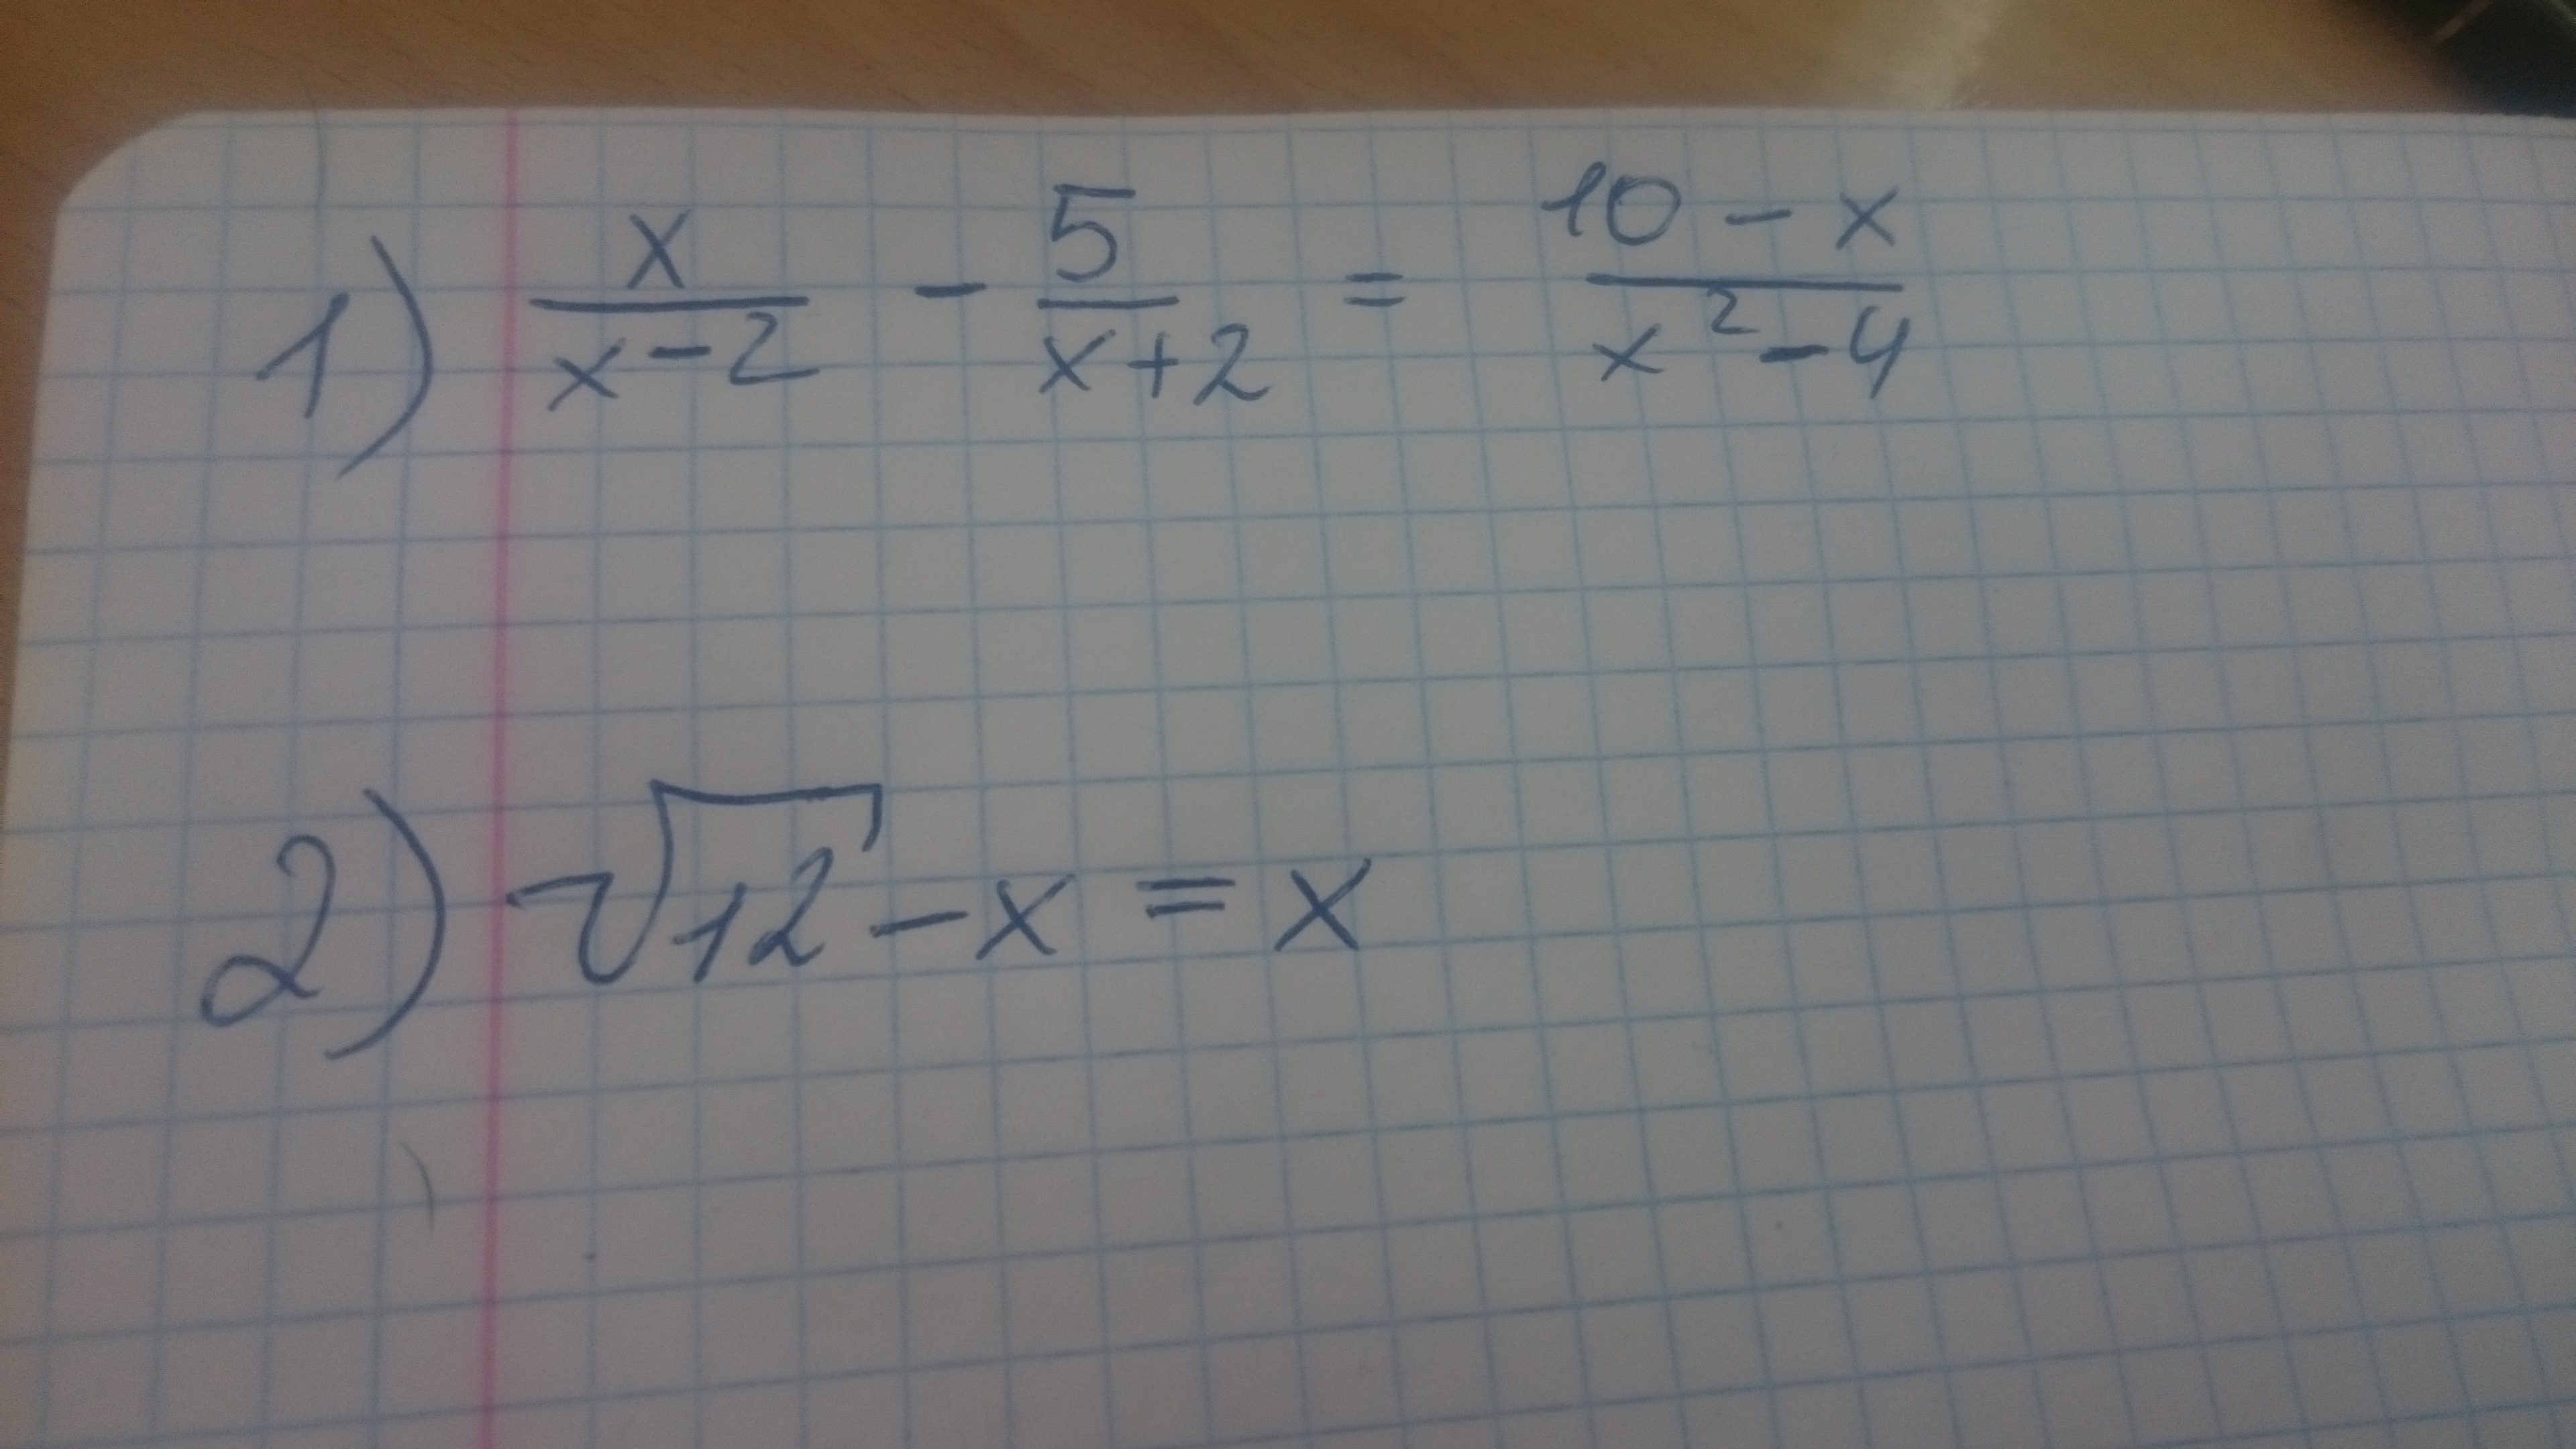 1) x/(x-2) - 5/(x+2) = (10-x)/(x²-4)
2) √12 - x = x